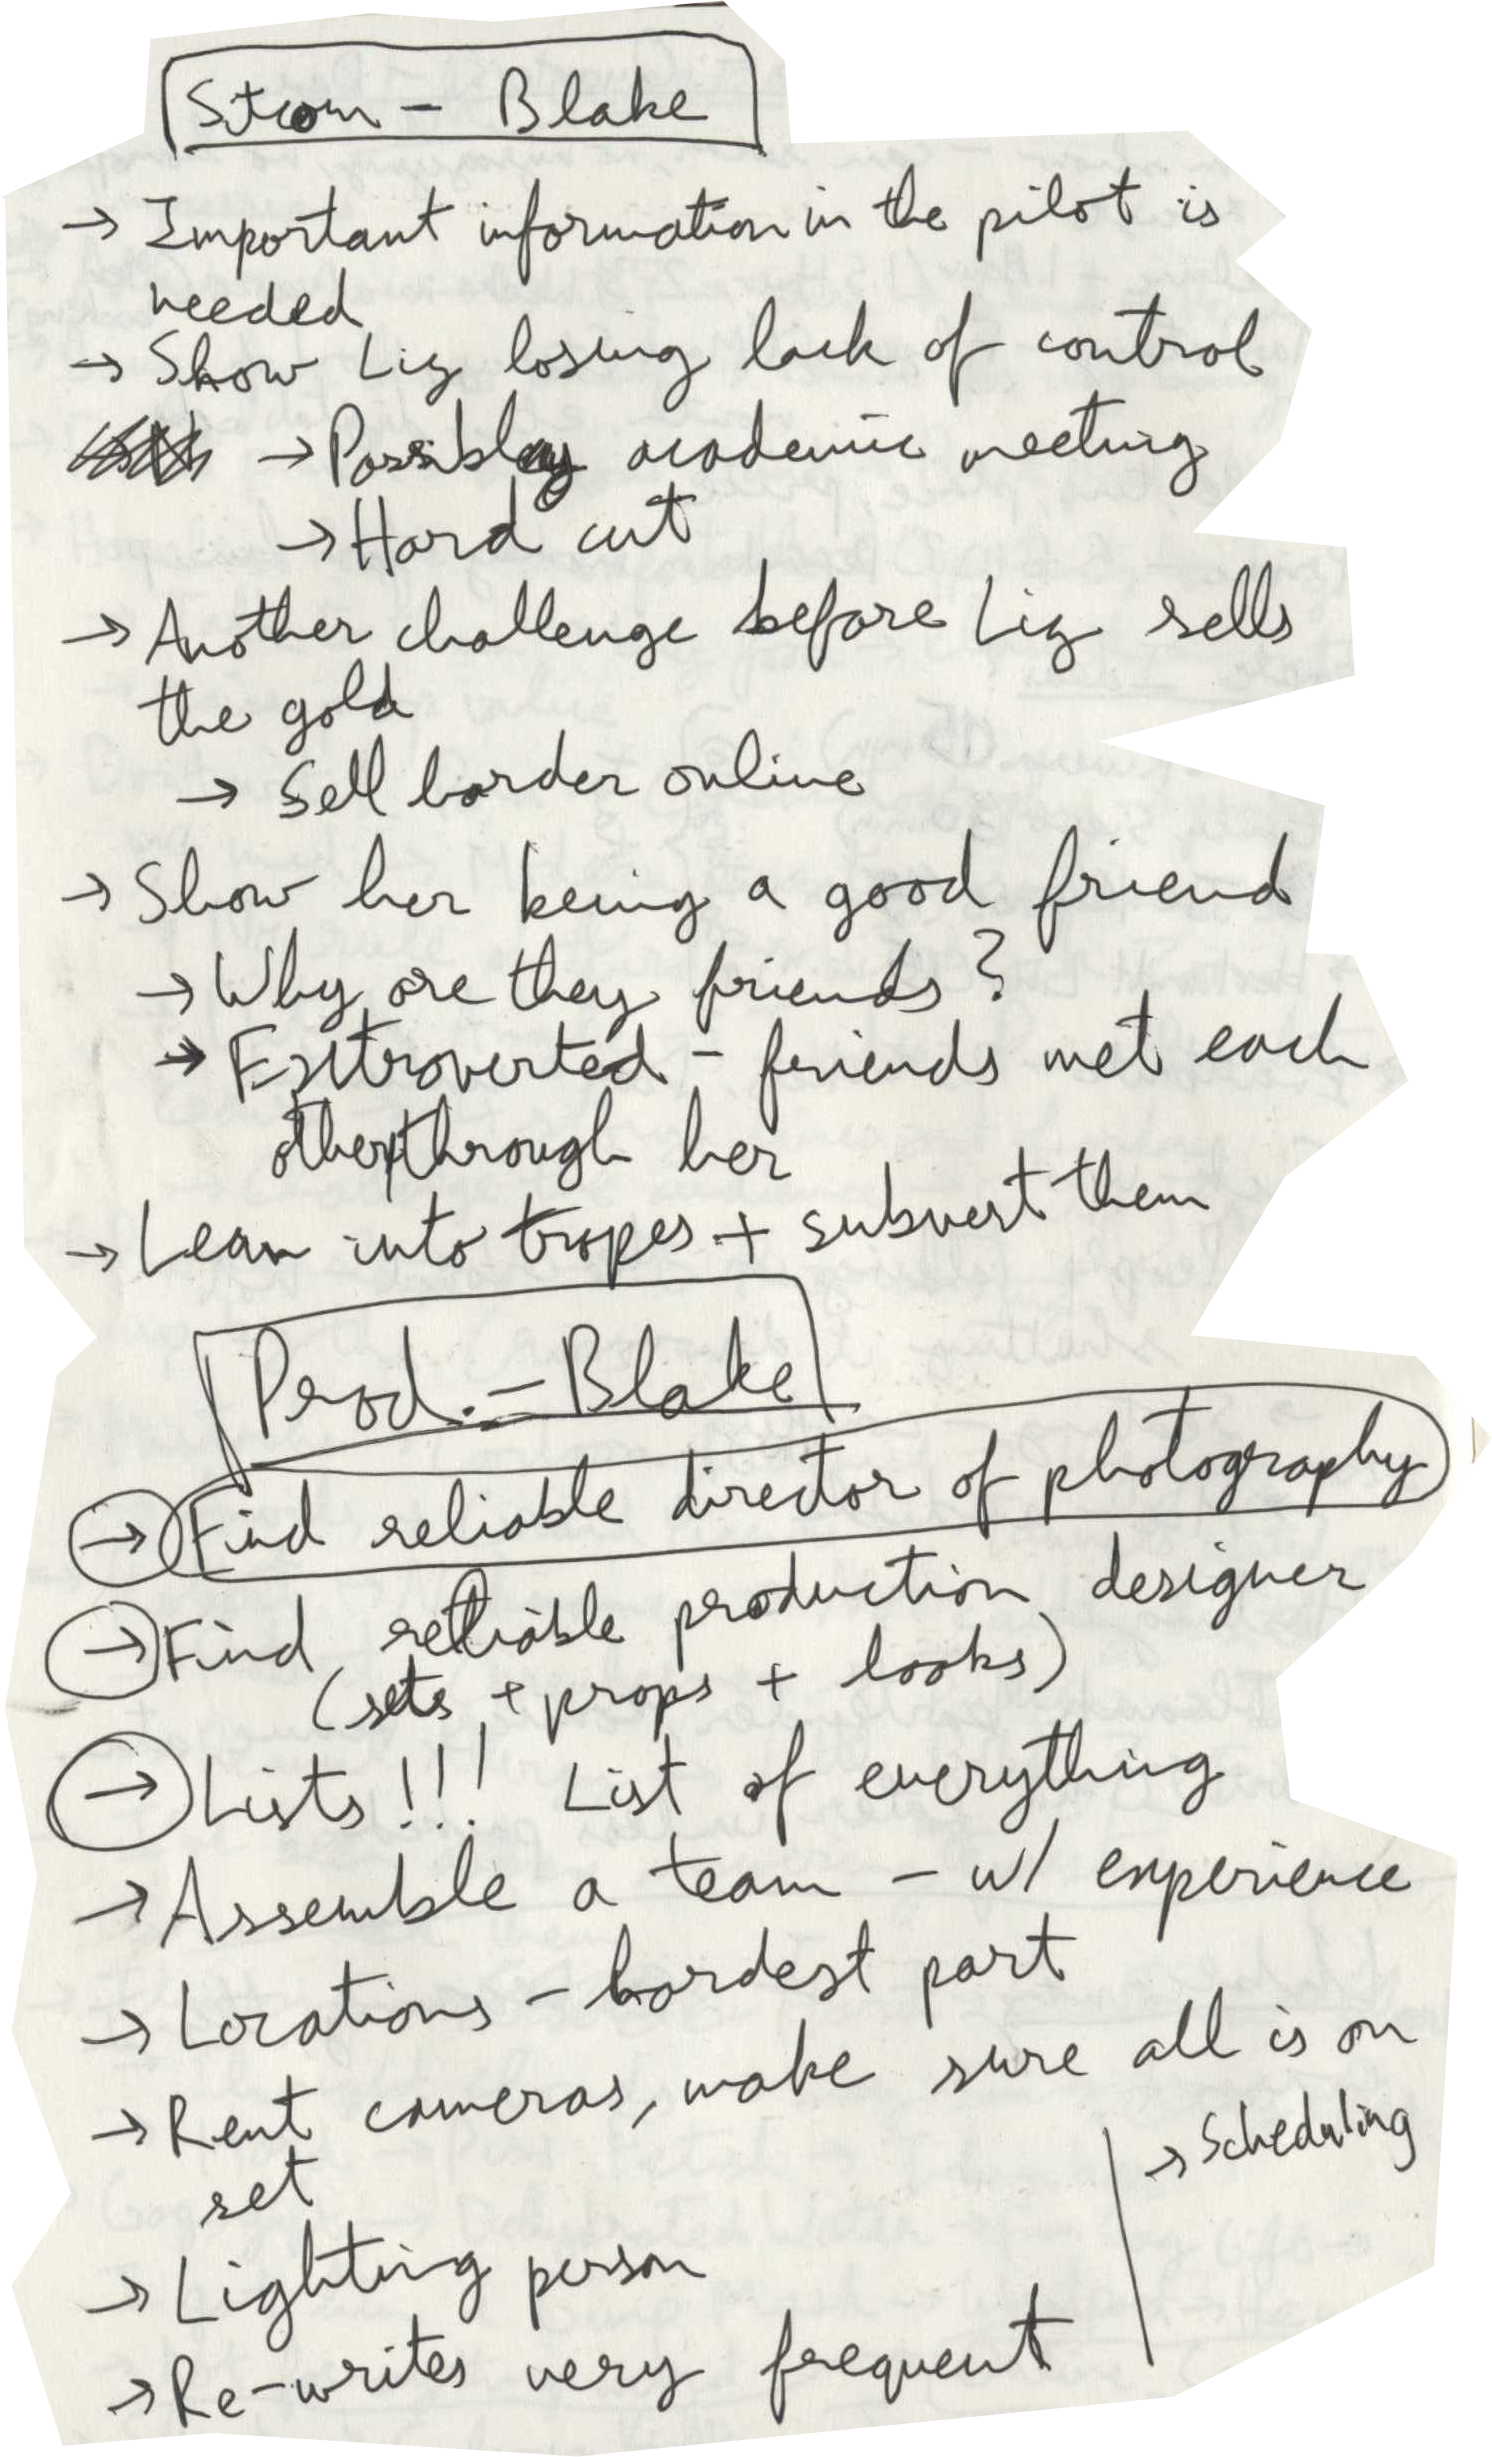 - Blake
→ Important information in the pilot is
needed
→ Show Liz losing lack of control
→ Possibly academic meeting
→ Hard cut
→ Another challenge before Liz sells
the gold
→ Sell harder online
→ Show her being a good friend
→ Why are they friends?
→ Extroverted - friends met each
other through her
→ Lean into tropes + subvert them
Prod. - Blake
→ Find reliable director of photography
→ Find reliable production designer
(sets + props + looks)
→ Lists!!! List of everything
→ Assemble a team - w/ experience
→ Locations - hardest part
→ Rent cameras, make sure all is on
set
→ Scheduling
→ Lighting person
→ Re-writes very frequent